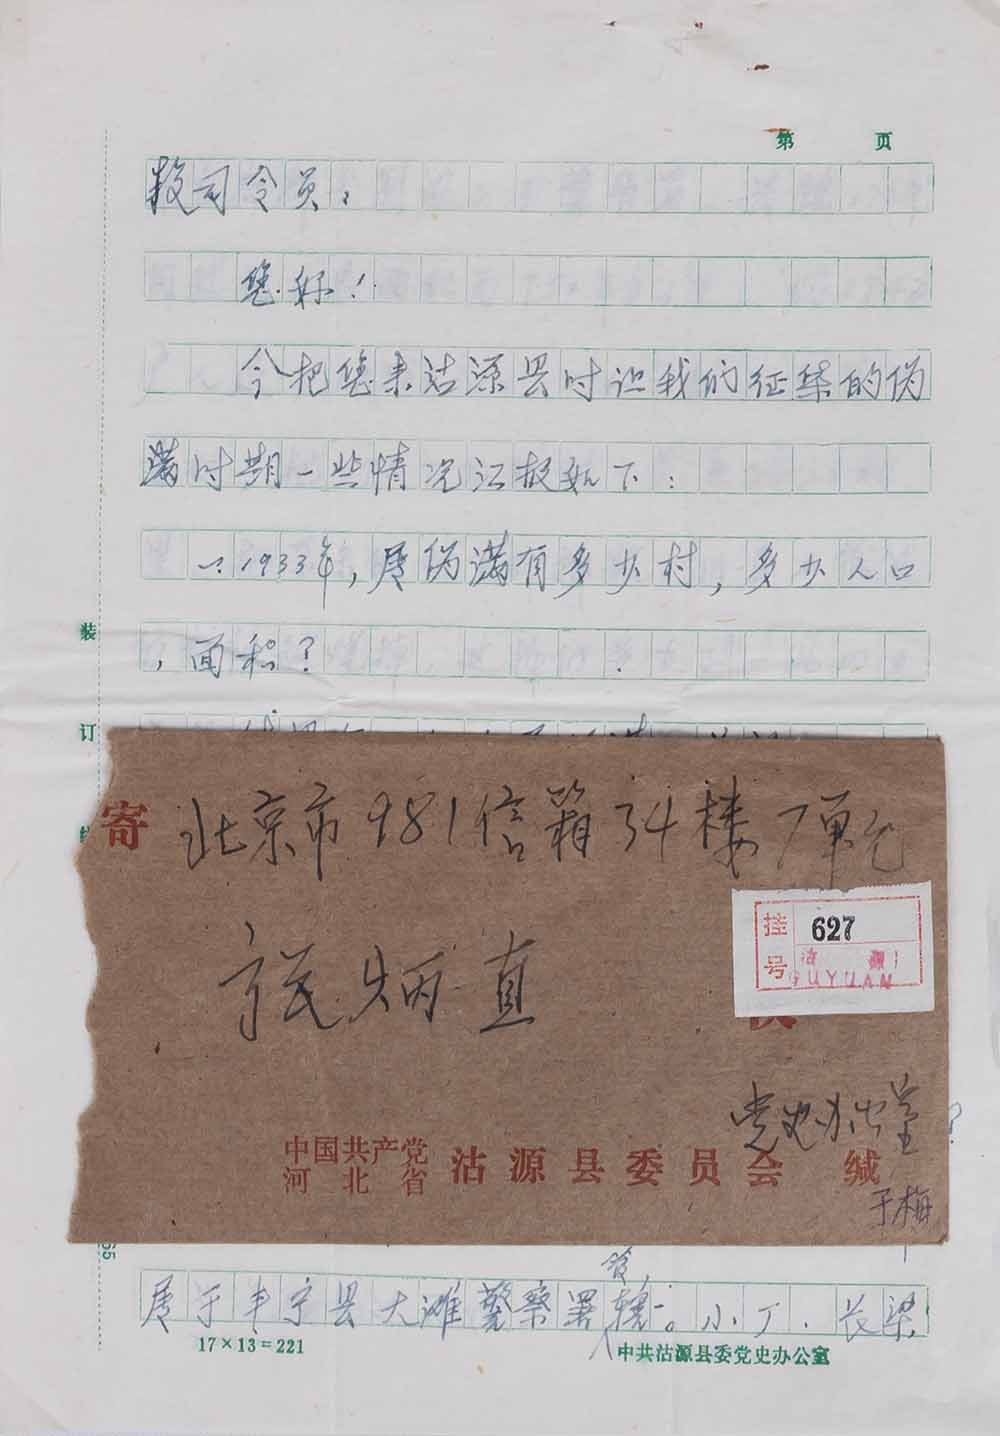 第 页
段司令员：
您好！
今把您来沽源县时让我们征集的伪
满时期一些情况汇报如下：
一.1933年，属伪满有多少村，多少人口
，面积？
装
订
寄
北京市981信箱34楼7单元
炳直
挂号
627
沽源
GUYUAN
党史办公室
中国共产党
河北省
沽源县委员会 缄
于梅
管，
属于丰宁县大滩警察署辖。小厂、长梁
17×13=221
中共沽源县委党史办公室